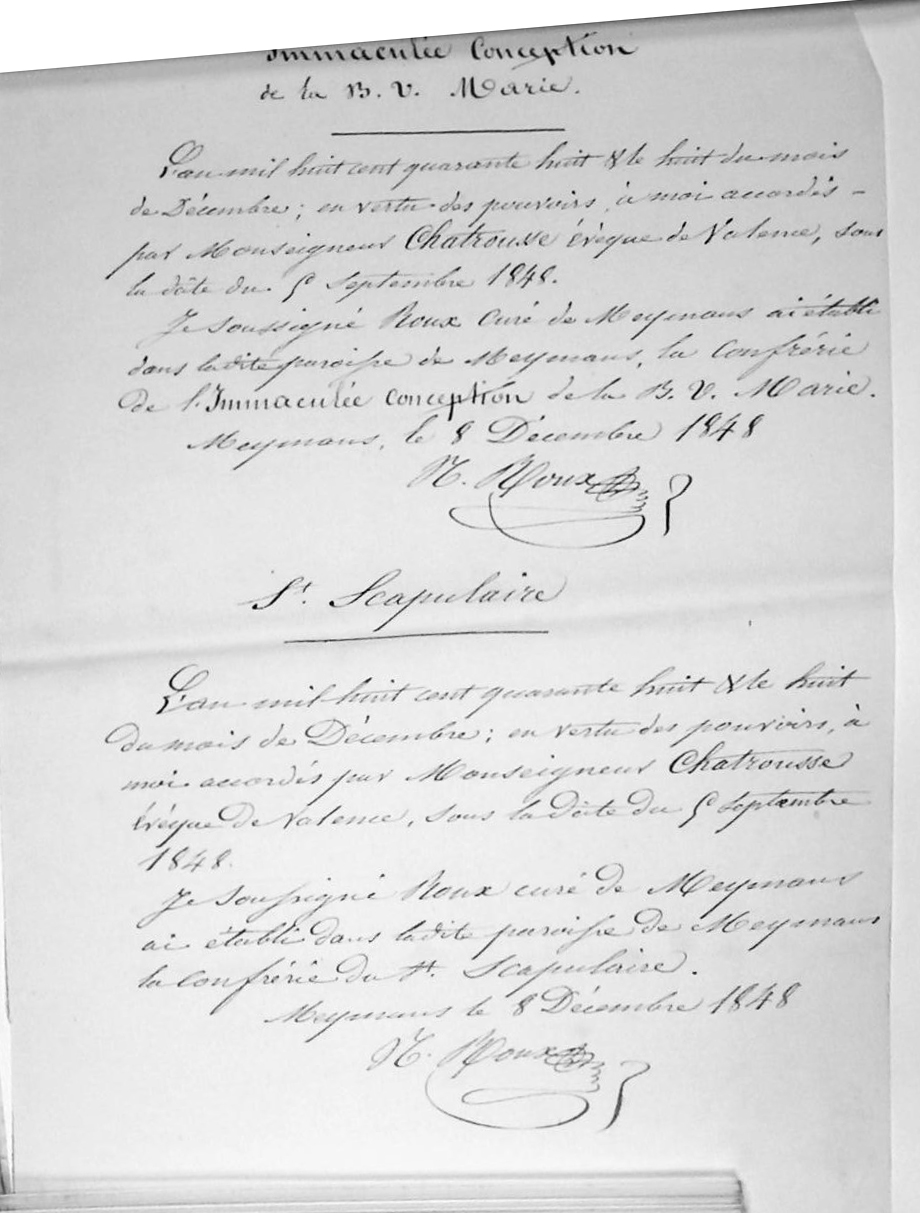 Immaculée Conception
de la B. V. Marie.
L'an mil huit cent quarante huit & le huit du mois
de Décembre ; en vertu des pouvoirs, à moi accordés -
par Monseigneur Chatrousse évèque de Valence, sous
la dâte du 5 Septembre 1848.
Je soussigné Roux Curé de Meymans ai établi
dans ladite paroisse de Meymans, la Confrérie
de l'Immaculée Conception de la B. V. Marie.
Meymans, le 8 Décembre 1848
N. Roux
St. Scapulaire
L'an mil huit cent quarante huit & le huit
du mois de Décembre ; en vertu des pouvoirs, à
moi accordés par Monseigneur Chatrousse
évèque de Valence, sous la dâte du 5 Septembre
1848.
Je soussigné Roux curé de Meymans
ai établi dans ladite paroisse de Meymans
la confrérie du St. Scapulaire.
Meymans le 8 Décembre 1848
N. Roux